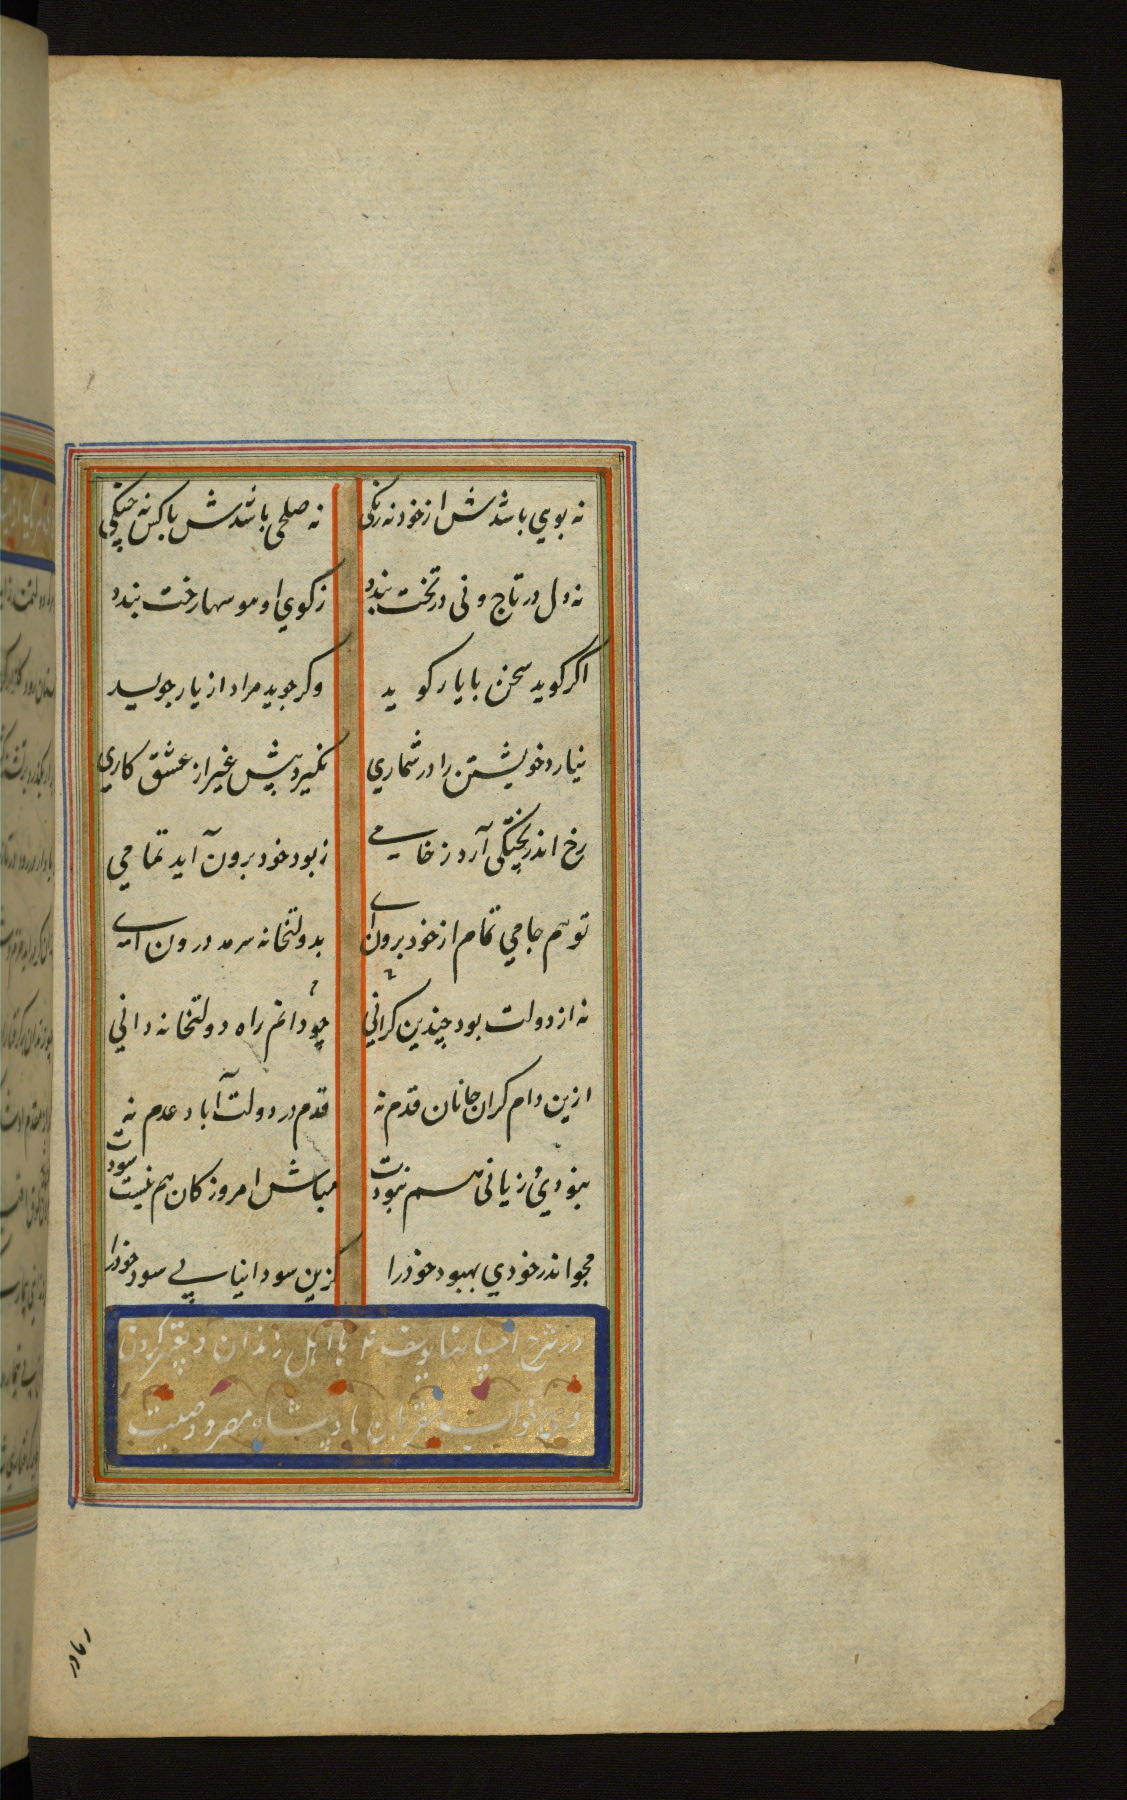 نه بوي باشدش از خود نه رنكي نه صلحي باشدش با كس نه جنكي
نه دل در تاج و ني در تخت بندد ز كوي او هوسها رخت بندد
اكر كويد سخن با يار كويد وكر جويد مراد از يار جويد
نيارد خويشتن را در شماري نكيرد پيش غير از عشق كاري
رخ اندر پختكي آرد ز خامي ز بود خود برون آيد تمامي
تو هم جامي تمام از خود برون آي بدولتخانه سرمد درون آي
نه از دولت بود چندين كراني چو دانم راه دولتخانه داني
ازين دام كران جانان قدم نه قدم در دولت آباد عدم نه
نبودي و زياني هم نبودت مباش امروز كان هم نيست سودت
مجو اندر خودي بهبود خود را كزين سودا نيابي سود خود را
در شرح يوسف با اهل زندان
خواب مقربان پادشاه مصر و وصيت